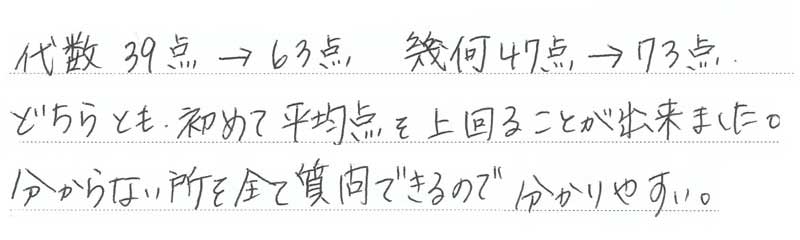 代数 39点 → 63点 幾何 47点 → 73点.
どちらとも、初めて平均点を上回ることが出来ました。
分からない所を全て質問できるので 分かりやすい。